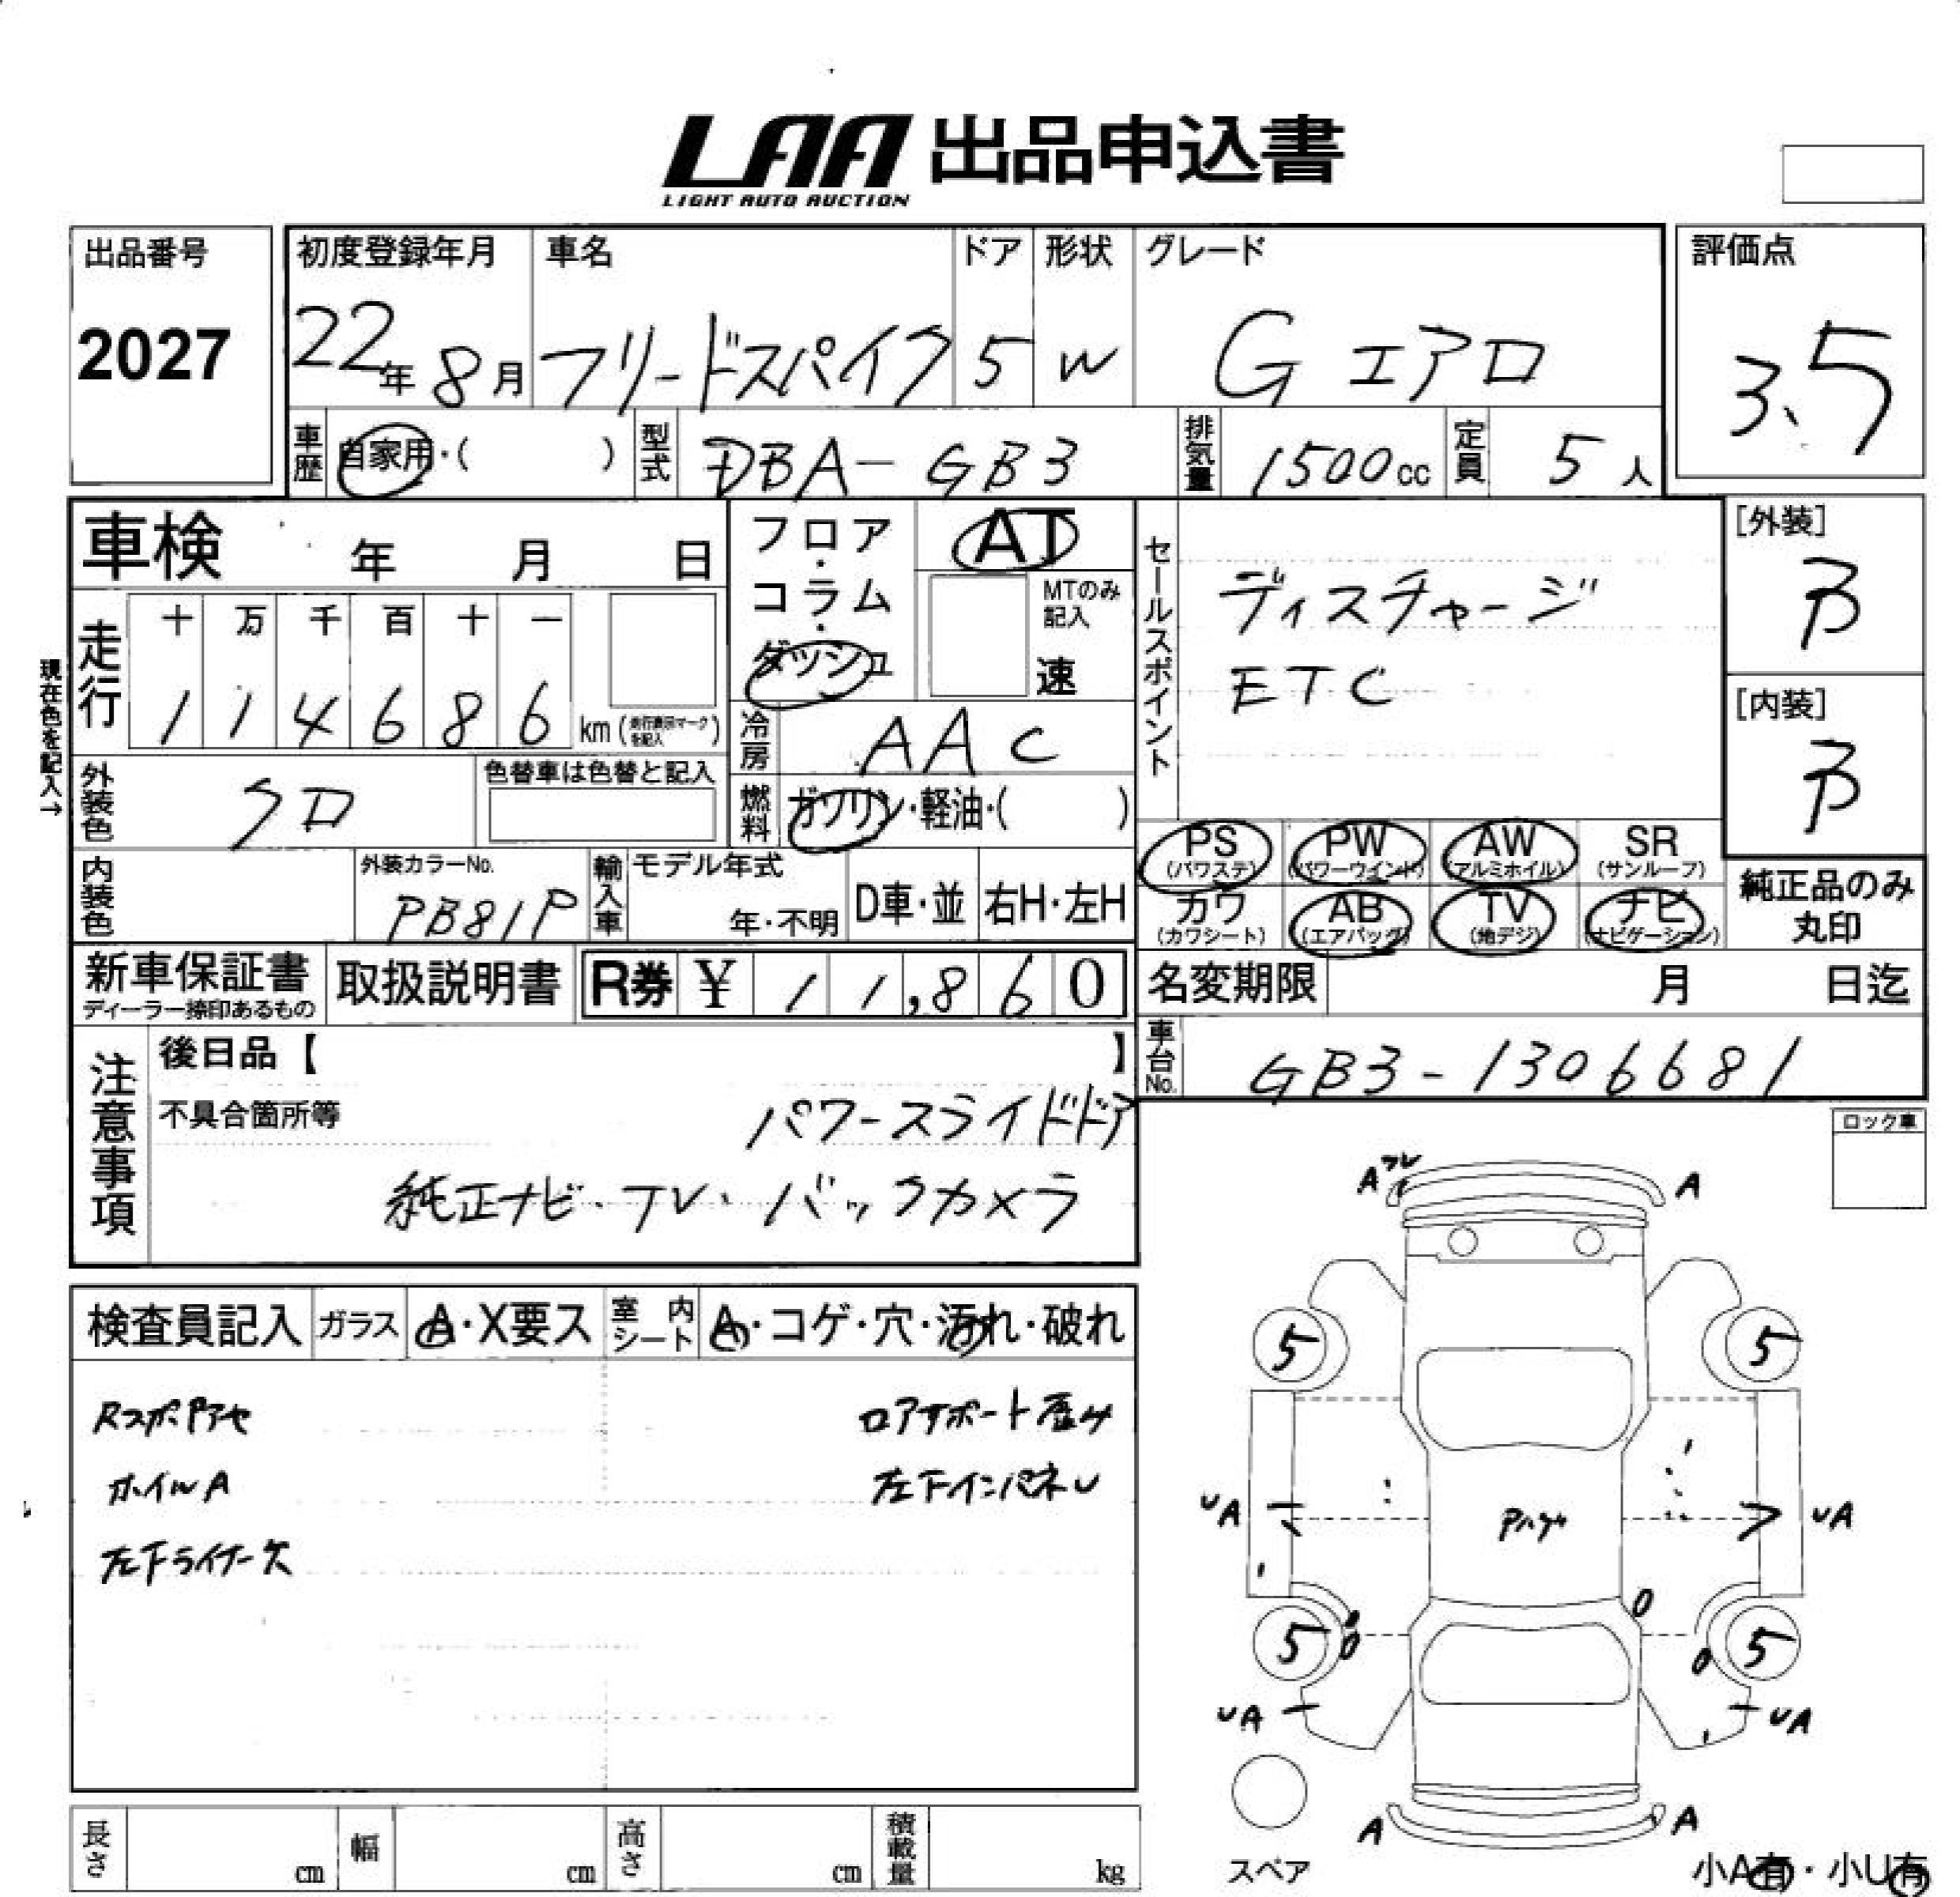 LAA 出品申込書
LIGHT AUTO AUCTION
出品番号
2027
初度登録年月
22年 8月
車名
フリードスパイク
ドア
5
形状
W
グレード
G エアロ
評価点
3.5
車歴
自家用・( )
型式
DBA-GB3
排気量
1500cc
定員
5 人
車検 年 月 日
フロア・
コラム・
ダッシュ
AT
MTのみ
記入
速
セールスポイント
ディスチャージ
ETC
[外装]
B
[内装]
B
現在色を記入→
走行
十 万 千 百 十 一
1 1 4 6 8 6 km (走行表示マークを記入)
冷房
AAC
外装色
クロ
色替車は色替と記入
燃料
ガソリン・軽油・( )
PS
(パワステ)
PW
(パワーウインド)
AW
(アルミホイル)
SR
(サンルーフ)
カワ
(カワシート)
AB
(エアバッグ)
TV
(地デジ)
ナビ
(ナビゲーション)
純正品のみ
丸印
内装色
外装カラーNo.
PB81P
輸入車
モデル年式
年・不明
D車・並
右H・左H
新車保証書
ディーラー捺印あるもの
取扱説明書
R券 ¥ 11,860
名変期限 月 日迄
車台No.
GB3-1306681
注意事項
後日品【 】
不具合箇所等
パワースライドドア
純正ナビ・TV・バックカメラ
ロック車
検査員記入
ガラス
A・X要ス
室内
シート
A・コゲ・穴・汚れ・破れ
ロアサポート歪み
ホイルA
左下ライナー欠
A
A
5
5
UA
UA
5
5
UA
UA
A
A
スペア
小A有・小U有
長さ cm
幅 cm
高さ cm
積載量 kg